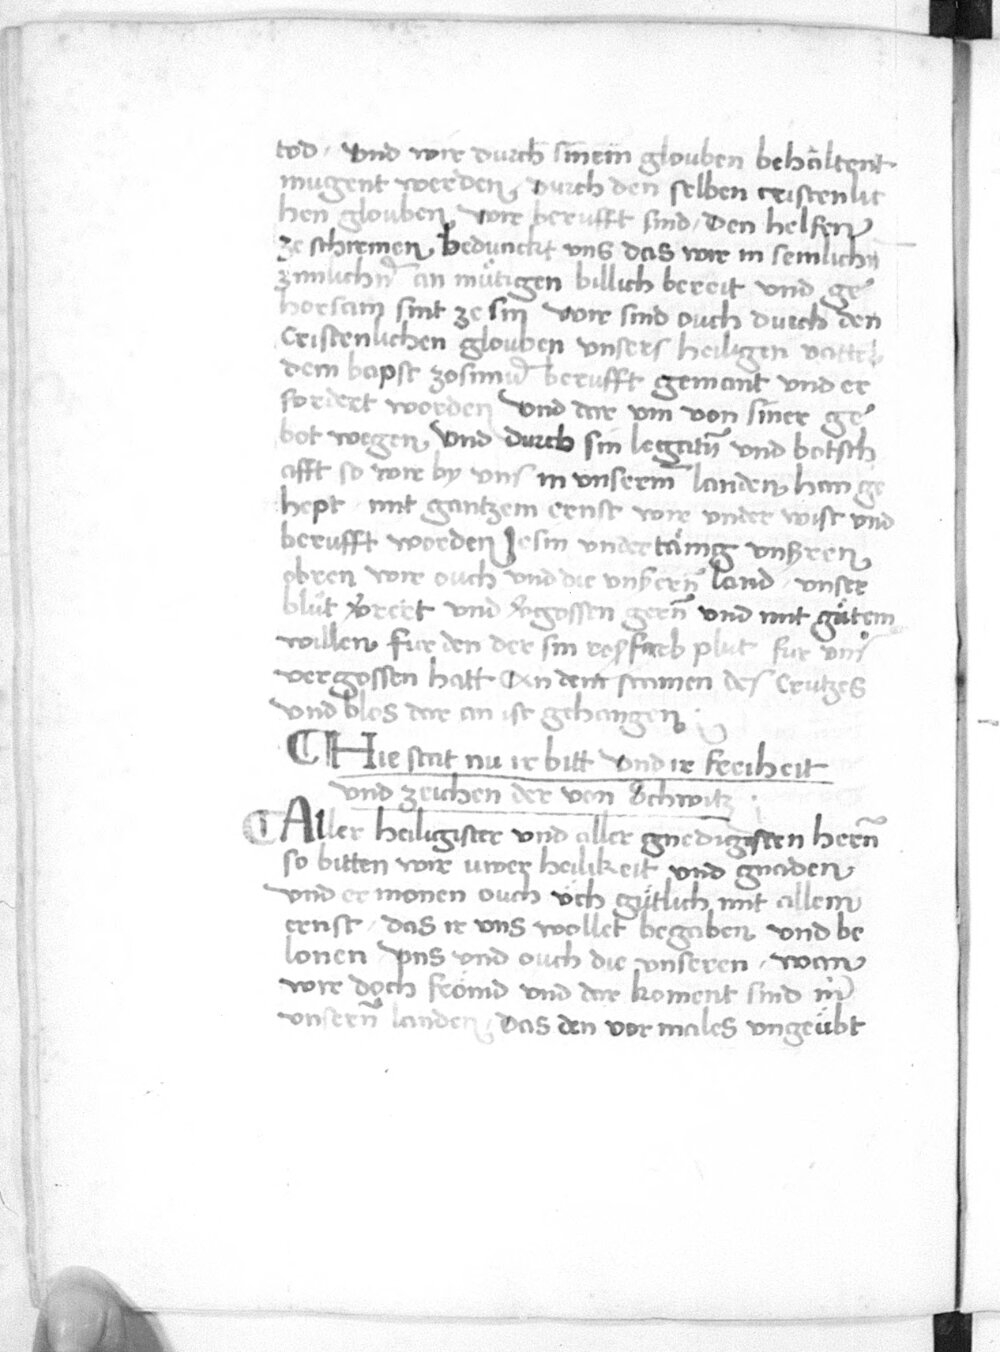 tod / vnd wir durch sinem glouben behaltent
mugent werden, Durch den selben cristenlic
hen glouben, wir berufft sind / Den helfen
ze schirmen, bedunckt vns das wir in semlichn̄
zimlichn̄ an mütigen billich bereit vnd ge
horsam sint ze sin wir sind ouch durch den
Cristenlichen glouben vnsers heiligen vatter
dem bapst zosimus berufft gemant vnd er
fordert worden vnd dar vm von siner ge
bot wegen, vnd durch sin legatn̄ vnd botsch
afft so wir by vns in vnserm̄ landen han ge
hept / mit gantzem ernst wir vnder wist vnd
berufft worden ze sin vndertänig vnßren
obren wir ouch vnd die vnßern̄ land / vnser
blůt v̄rert vnd v̄gossen gern̄ vnd mit gůtem
willen fur den der sin rosfarb plut fur vns
vergossen hatt An dem stamen des Crutzes
vnd blos dar an ist gehangen,
Hie stat nu ir bitt vnd ir freiheit
vnd zeichen der von Schwitz
Aller heiligister vnd aller gnedigisten hern̄
so bitten wir uwer heilikeit vnd gnaden
vnd er monen ouch üch gütlich mit allem
ernst / das ir vns wollet begaben vnd be
lonen vns vnd ouch die vnseren / wan
wir doch frömd vnd dar koment sind in
vnsern̄ landen, / Das den vor males vngeübt